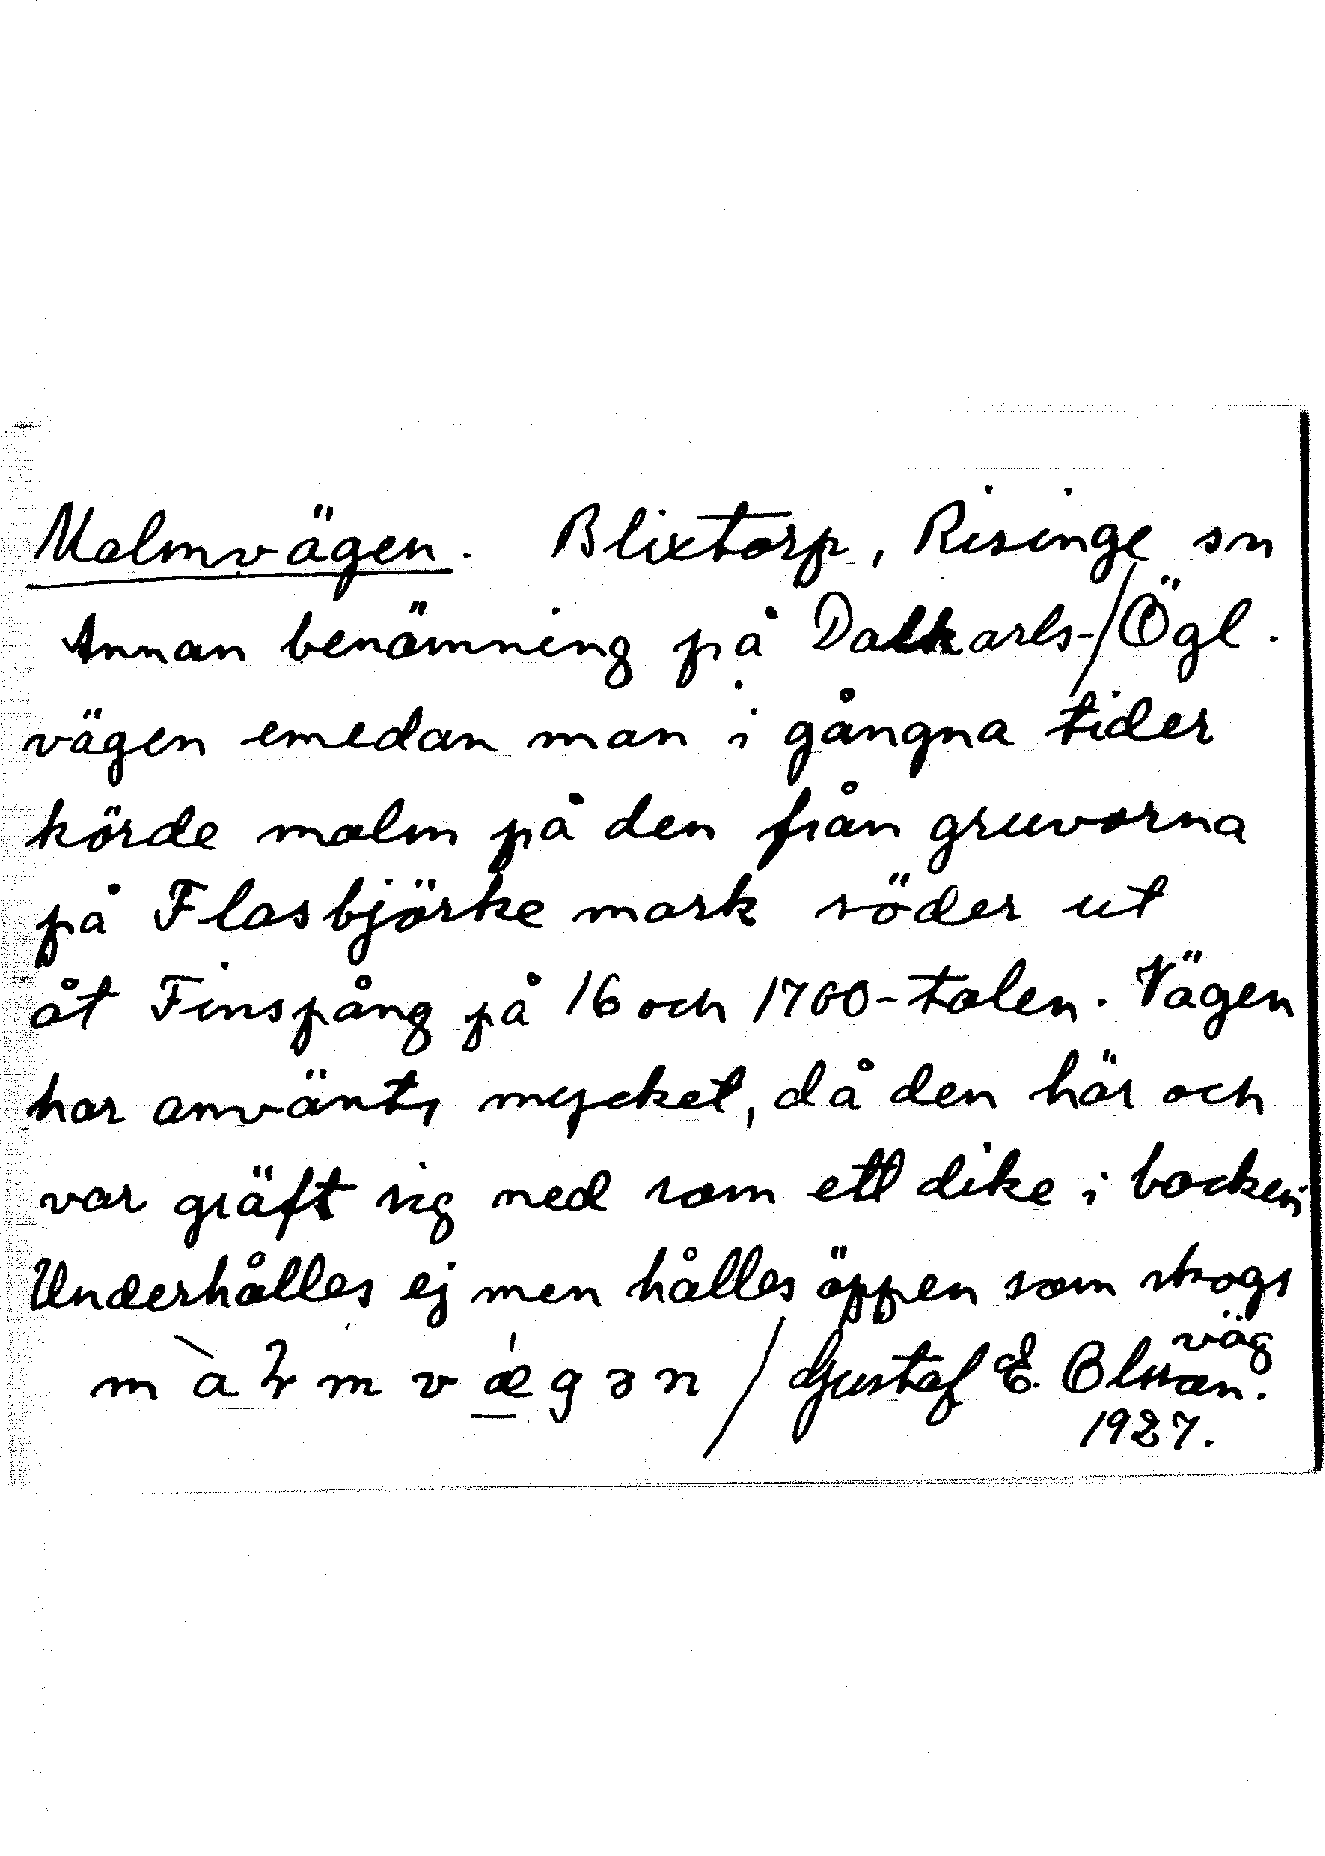 Malmvägen. Blixtorp, Risinge sn
Annan benämning på Dalkarls-/Ögl.
vägen emedan man i gångna tider
körde malm på den från gruvorna
på Flasbjörke mark söder ut
åt Finspång på 16 och 1700-talen. Vägen
har använts mycket, då den här och
var gräft sig ned som ett dike i backen
Underhålles ej men hålles öppen som skogs
väg
m a m v æ g ə n / Gustaf E. Olsson.
1927.